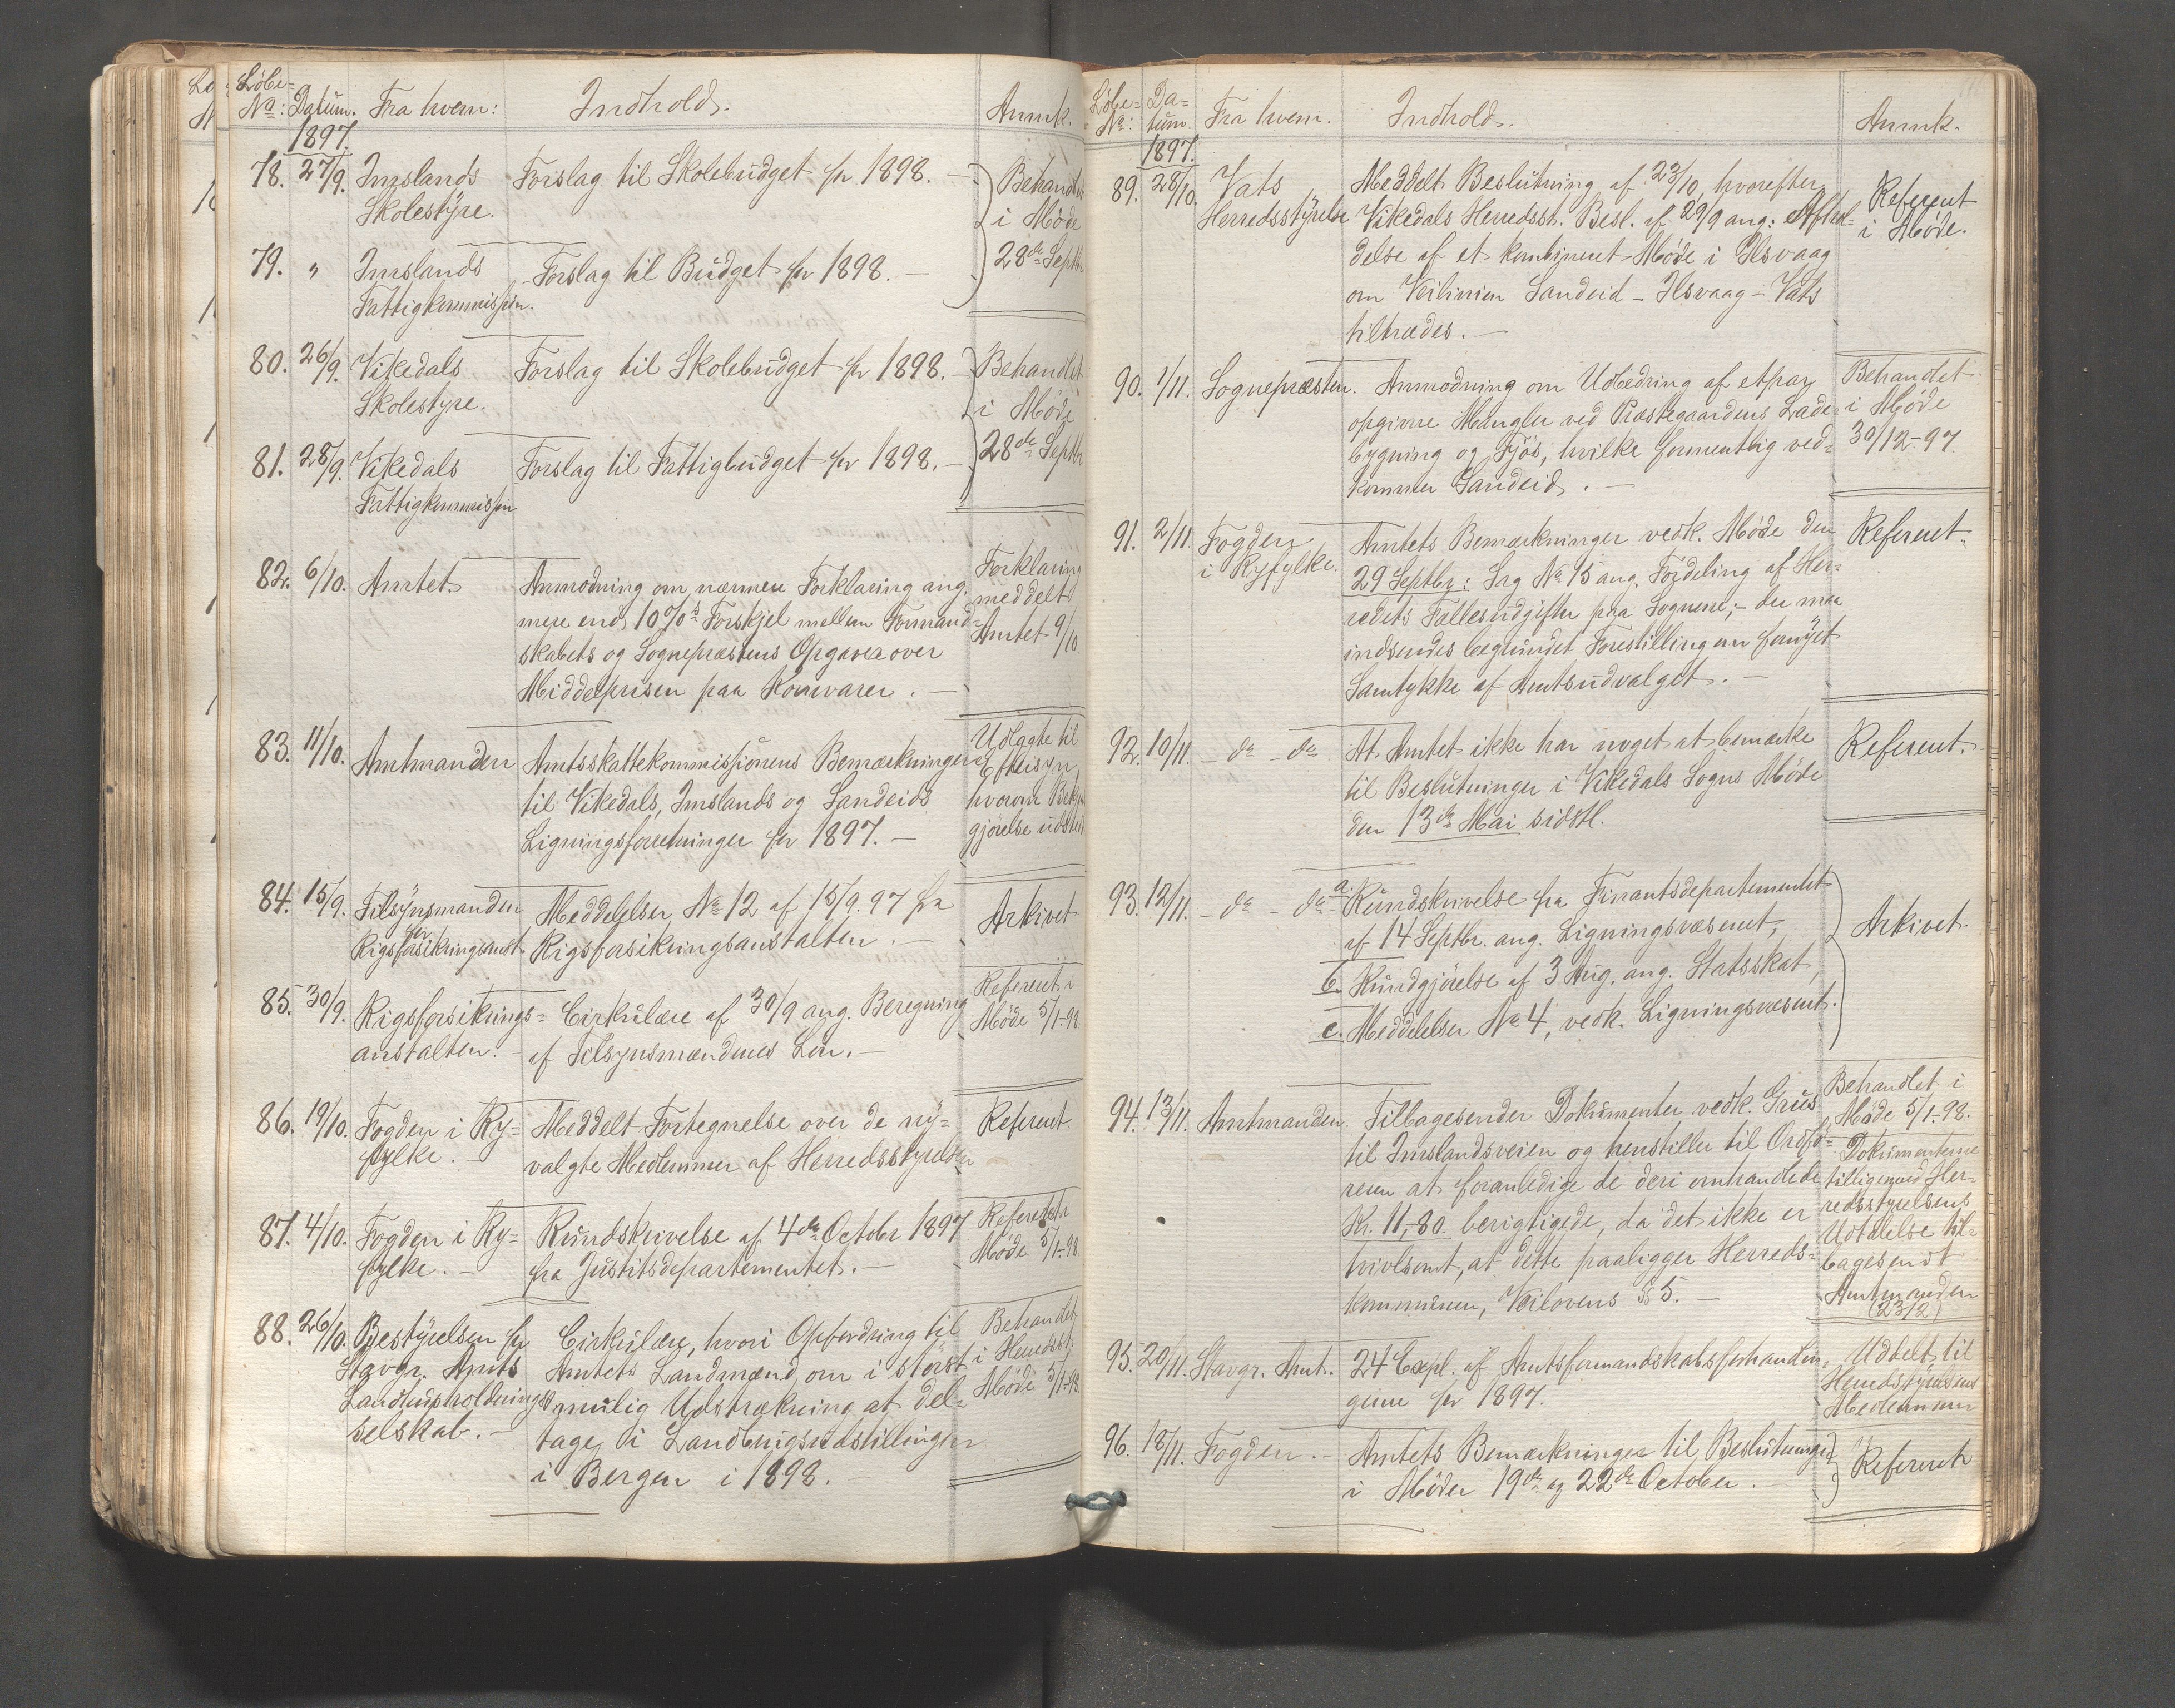 Löbe-
No: Datum. Fra hvem: Indhold. Anmk.
1897.
78. 27/9. Imslands Forslag til Skolebudget for 1898. — Behandlet
Skolestyre. i Möde
79. " Imslands Forslag til Budget for 1898. — 28de Septbr
Fattigkommission.
80. 26/9. Vikedals Forslag til Skolebudget for 1898. — Behandlet
Skolestyre. i Möde
81. 28/9. Vikedals Forslag til Fattigbudget for 1898. — 28de Septbr
Fattigkommission
82. 6/10. Amtet. Anmodning om nærmere Forklaring ang. Forklaring
mere end 10%s Forskjel mellem Formand- meddelt
skabets og Sognepræstens Opgaver over Amtet 9/10
Middelprisen paa Kornvarer. —
83. 11/10. Amtmanden Amtsskattekommissionens Bemærkninger Udlagte til
til Vikedals, Imslands og Sandeids Eftersyn
Ligningsforretninger for 1897. — hvorom
gjörelse
84. 15/9. Tilsynsmanden Meddelelser No 12 af 15/9. 97 fra Arkivet
for
Rigsforsikringsanst. Rigsforsikringsanstalten. —
85. 30/9. Rigsforsikrings- Cirkulære af 30/9 ang. Beregning Referert i
anstalten. — af Tilsynsmændenes Lön. — Möde 5/1-98
86. 19/10. Fogden i Ry- Meddelt Fortegnelse over de ny- Referert.
fylke. — valgte Medlemmer af Herredsstyrelsen
87. 4/10. Fogden i Ry- Rundskrivelse af 4de October 1897 Referert i
fylke. — fra Justitsdepartementet. — Möde 5/1-98
88. 26/10. Bestyrelsen for Cirkulære, hvori Opfordring til Behandlet
Stavgr. Amts Amtets Landmænd, om i störst i Herredsst.
Landhusholdnings- mulig Udstrækning at del- Möde 5/1-98
selskab. — tage i Landbrugsudstillingen
i Bergen i 1898.
Löbe- Da-
No: tum. Fra hvem. Indhold. Anmk.
1897.
89. 28/10. Vats Meddelt Beslutning af 23/10, hvorefter Referert
Herredsstyrelse Vikedals Herredsst. Besl. af 29/9 ang: Afhol- i Möde.
delse af et kombineret Möde i Ilsvaag
om Veilinien Sandeid – Ilsvaag – Vats
tiltrædes. —
90. 1/11. Sognepræsten. Anmodning om Udbedring af etpar Behandlet
opgivne Mangler ved Præstegaardens Lade- i Möde
bygning og Fjös, hvilke formentlig ved- 30/12-97.
kommer Sandeid. —
91. 2/11. Fogden Amtets Bemærkninger vedk. Möde den Referert.
i Ryfylke. 29 Septbr: Sag No 15 ang. Fordeling af Her-
redets Fællesudgifter paa Sognene; – der maa
indsendes begrundet Forestilling om fornyet
Samtykke af Amtsudvalget. —
92. 10/11. – do – do At Amtet ikke har noget at bemærke Referert.
til Beslutninger i Vikedals Sogns Möde
den 13de Mai sidstl.
93. 12/11. – do – do a. Rundskrivelse fra Finantsdepartementet
af 14 Septbr. ang. Ligningsvæsenet, Arkivet.
b. Kundgjörelse af 3 Aug. ang. Statsskat,
c. Meddelelser No 4, vedk. Ligningsvæsenet.
94. 13/11. Amtmanden. Tilbagesender Dokumenter vedk. Grus Behandlet i
til Imslandsveien og henstiller til Ordfö- Möde 5/1-98.
reren at foranledige de deri omhandlede Dokumenterne
Kr. 11,-80 berigtigede, da det ikke er tilligemed Her-
tvivlsomt, at dette paaligger Herreds- redsstyrelsens
kommunen, Veilovens § 5. — Udtalelse til-
bagesendt
Amtmanden
(23/2)
95. 20/11. Stavgr. Amt. 24 Expl. af Amtsformandskabsforhandlin- Uddelt til
gerne for 1897. Herredsstyrelsens
Medlemmer
96. 18/11. Fogden. — Amtets Bemærkninger til Beslutninger Referert
i Möder 19de og 22de October.